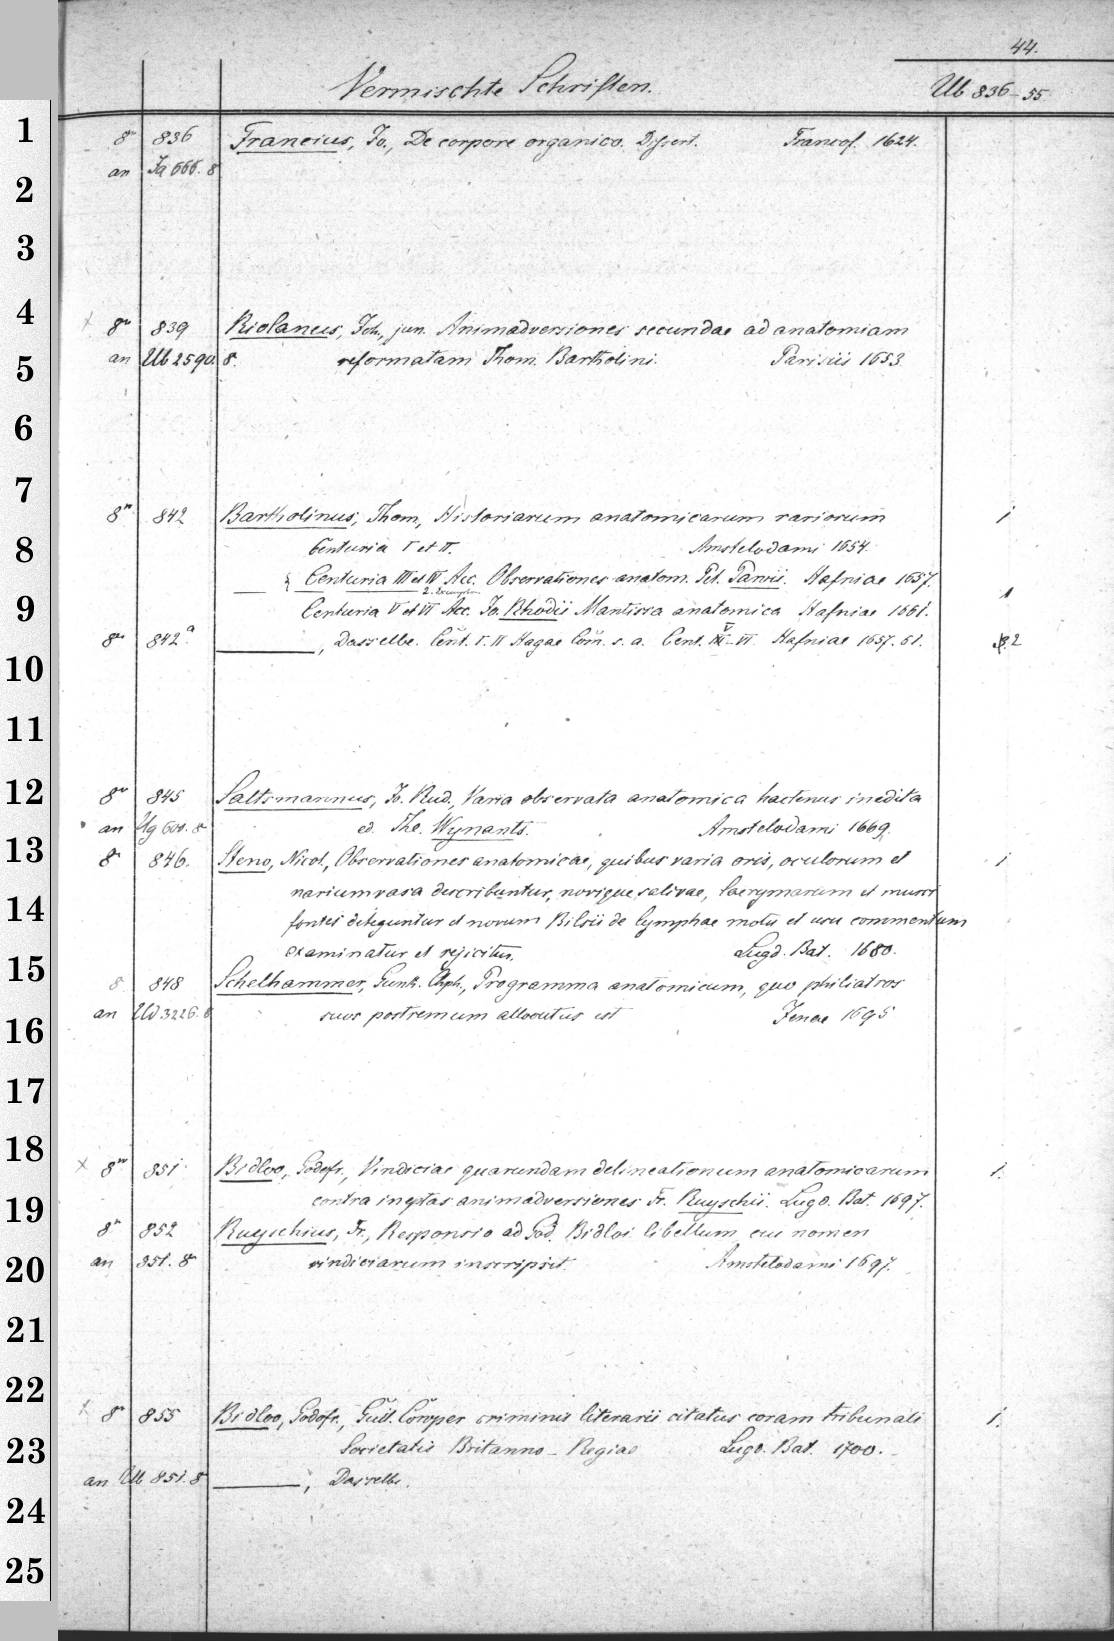 44.
Vermischte Schriften.
Ub 836-55
1
8º 836 Francius, Jo., De corpore organico. Dissert. Francof. 1624.
an Ja 666. 8
2
3
4
8º 839 Riolanus, Joh., jun. Animadversiones secundae ad anatomiam
5
an Ub 2590. 8. reformatam Thom. Bartholini. Parisiis 1653.
6
7
8º 842 Bartholinus, Thom., Historiarum anatomicarum rariorum 1
8
Centuria I et II. Amstelodami 1654.
— { Centuria III et IV Acc. Observationes anatom. Pet. Pawii. Hafniae 1657.
2. Exemplar
9
Centuria V et VI Acc. Jo. Rhodii Mantissa anatomica Hafniae 1661. 1
8º 842ª —, Dasselbe. Cent. I. II Hagae Com. s. a. Cent. V-VI Hafniae 1657. 61. 2
10
11
12
8º 845 Saltsmannus, Jo. Rud., Varia observata anatomica hactenus inedita
an Ug 601. 8 ed. The. Wynants. Amstelodami 1669.
13
8º 846. Steno, Nicol., Observationes anatomicae, quibus varia oris, oculorum et 1
14
narium vasa describuntur, novique salivae, lacrymarum et muci
fontes deteguntur et novum Bilsii de lymphae motu et usu commentum
15
examinatur et rejicitur. Lugd. Bat. 1680.
8 848 Schelhammer, Gunth. Chph., Programma anatomicum, quo philiatros
16
an Ud 3226. 8 suos postremum allocutus est Jenae 1695
17
18
8º 851 Bidloo, Godofr., Vindiciae quarundam delineationum anatomicarum 1.
19
contra ineptas animadversiones Fr. Ruyschii. Lugd. Bat. 1697.
8º 852 Ruyschius, Fr., Responsio ad God. Bidloi libellum cui nomen
20
an 851. 8 vindiciarum inscripsit. Amstelodami 1697.
21
22
8º 855 Bidloo, Godofr., Guil. Cowper criminis literarii citatus coram tribunali 1.
23
Societatis Britanno-Regiae Lugd. Bat. 1700.
an Ub 851. 8 —, Dasselbe.
24
25